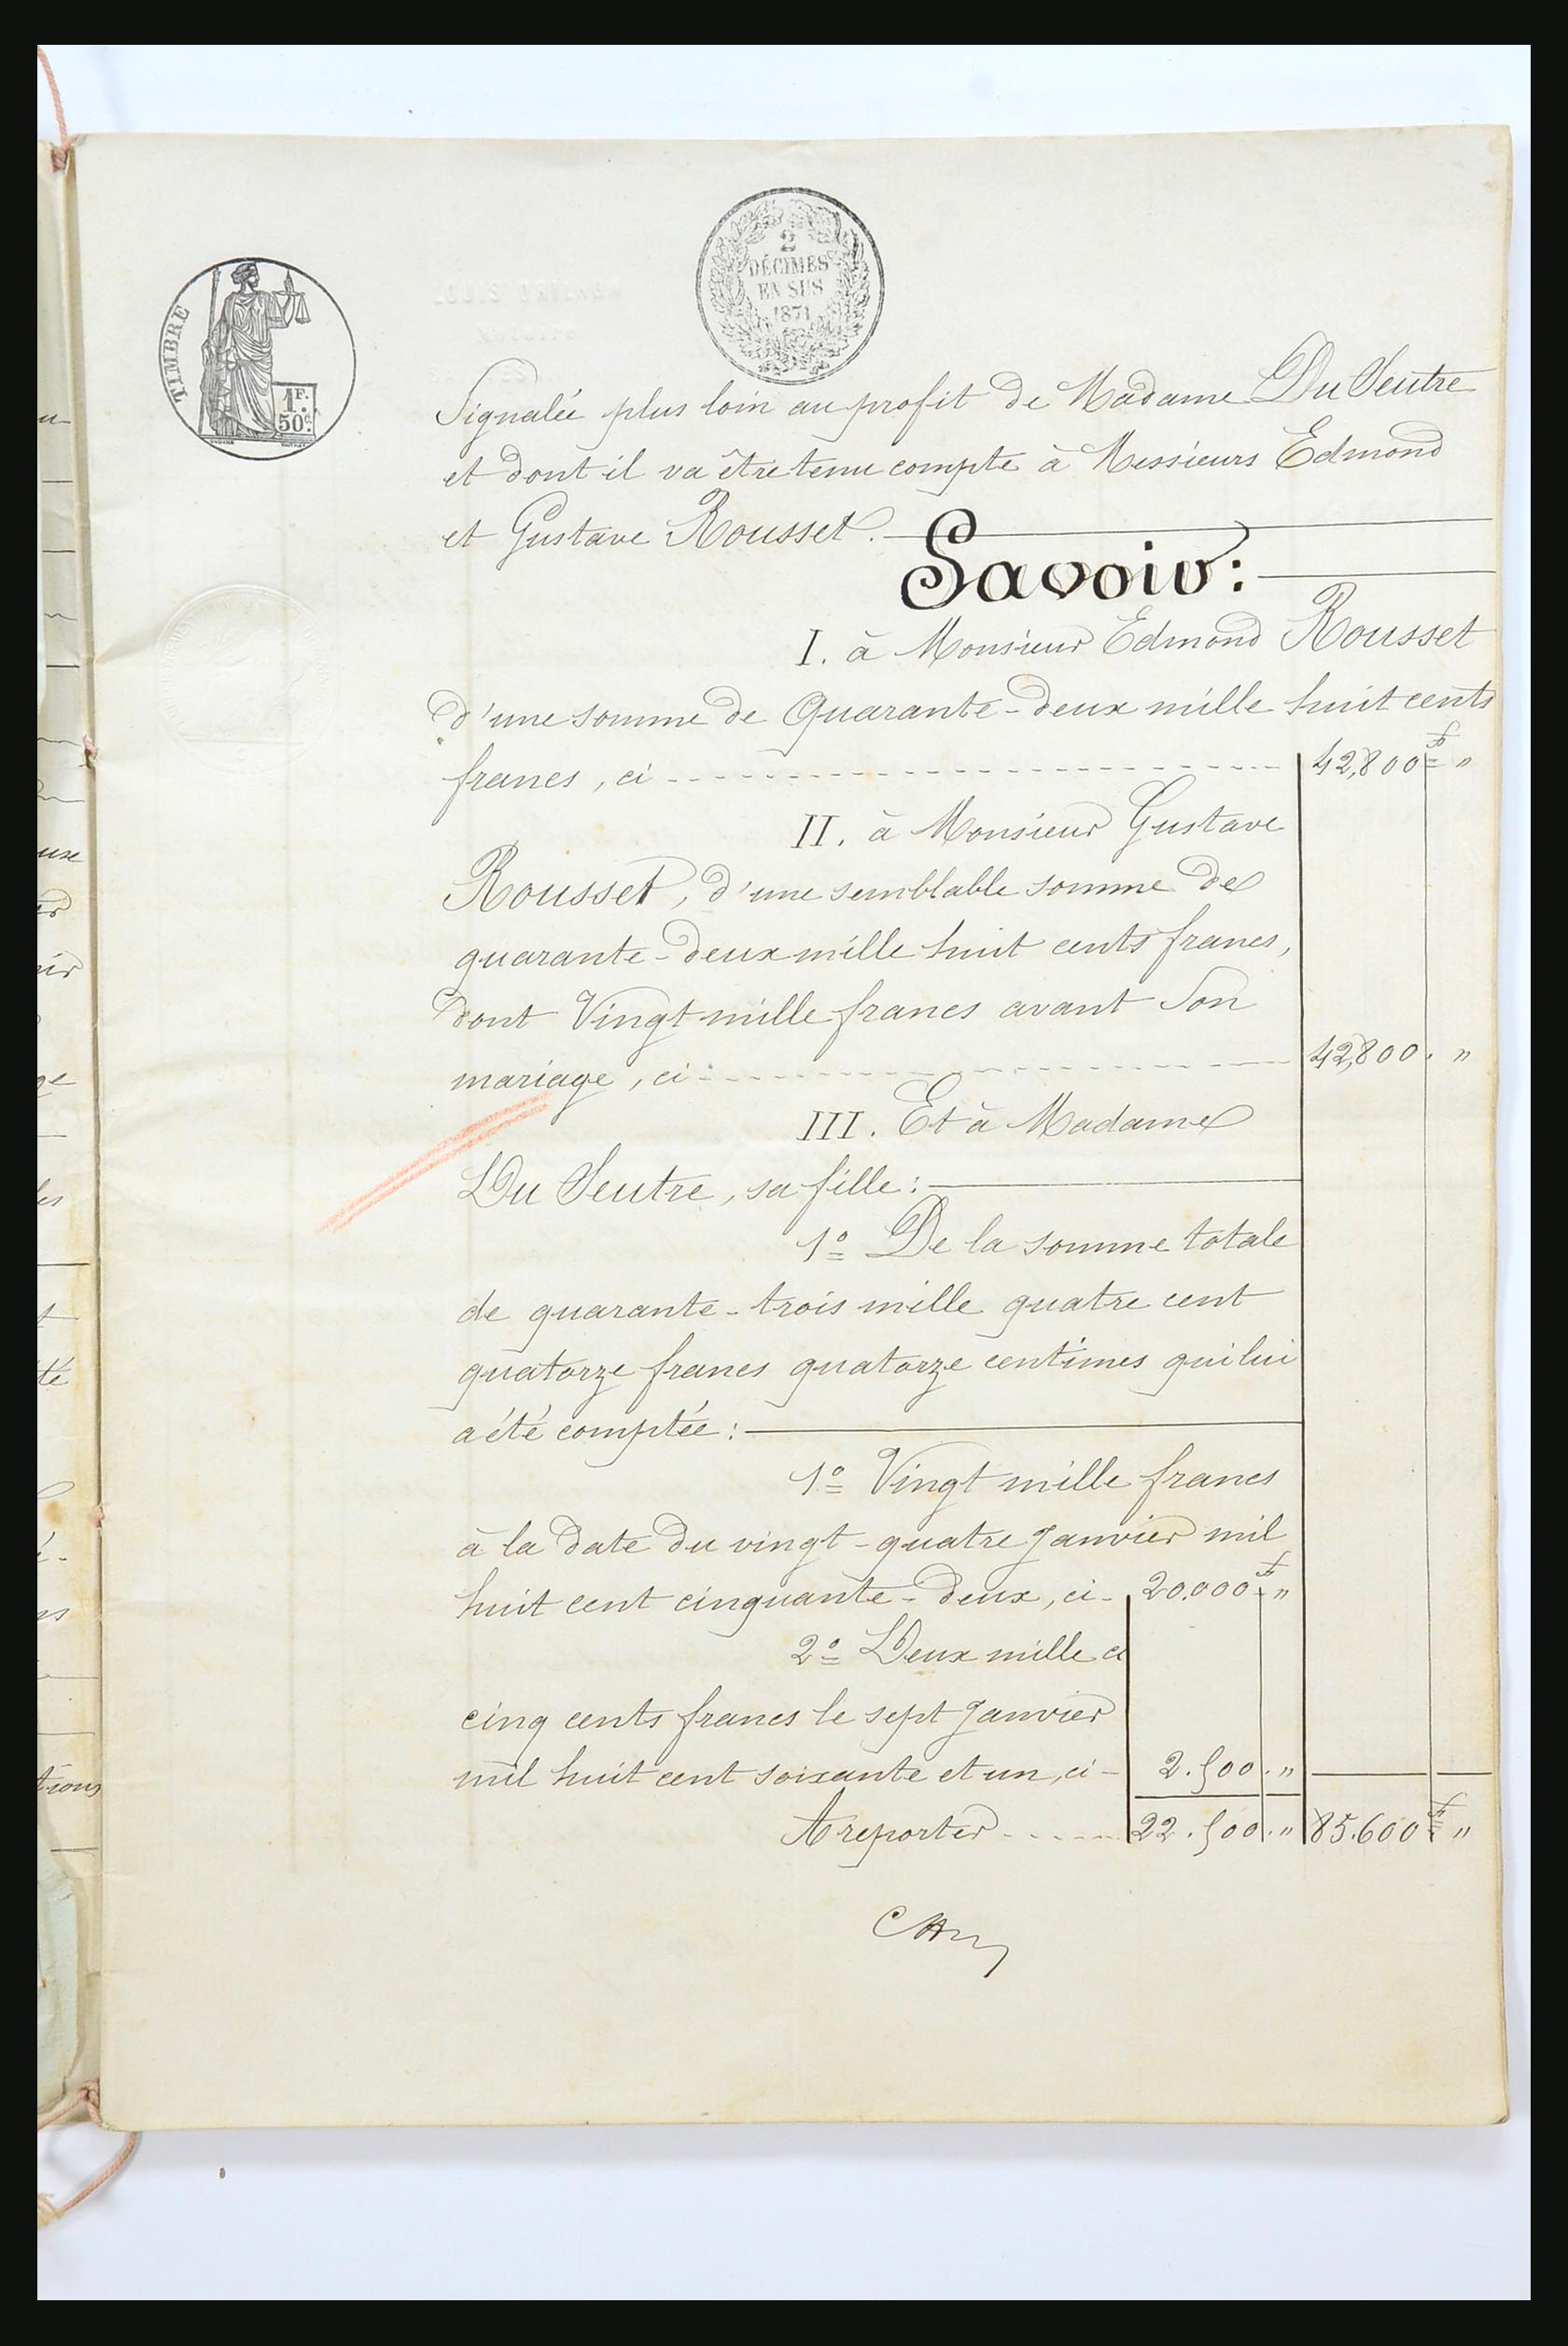 TIMBRE
1F.
50c.
2
DÉCIMES
EN SUS
1871
Signalée plus loin au profit de Madame Du Seutre
et dont il va être tenu compte à Messieurs Edmond
et Gustave Rousset.
Savoir:
I. à Monsieur Edmond Rousset
d'une somme de Quarante-deux mille huit cents
francs, ci 42,800 f "
II. à Monsieur Gustave
Rousset, d'une semblable somme de
quarante-deux mille huit cents francs,
dont Vingt mille francs avant son
mariage, ci 42,800. "
III. Et à Madame
Du Seutre, sa fille:
1º De la somme totale
de quarante-trois mille quatre cent
quatorze francs quatorze centimes qui lui
a été comptée:
1º Vingt mille francs
à la date du vingt-quatre Janvier mil
huit cent cinquante-deux, ci- 20.000 f "
2º Deux mille
cinq cents francs le sept Janvier
mil huit cent soixante et un, ci- 2.500. "
A reporter 22.500. " 85.600 f "